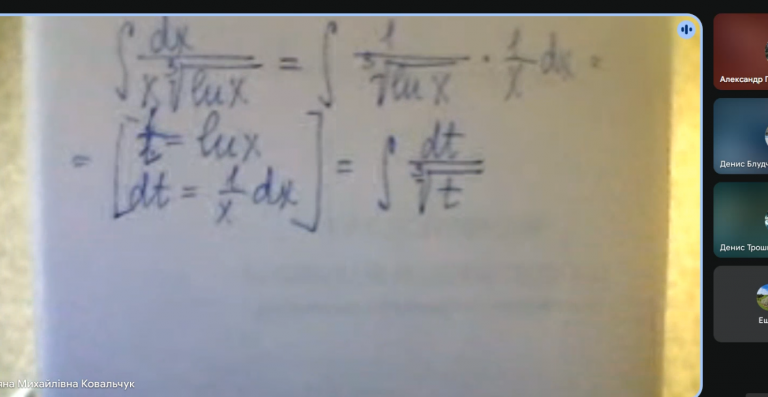 ∫ dx / (x ⁵√ln x) = ∫ 1 / ⁵√ln x · 1/x dx =
= [ t = ln x
dt = 1/x dx ] = ∫ dt / ⁵√t
Александр
Денис
Денис
яна Михайлівна Ковальчук